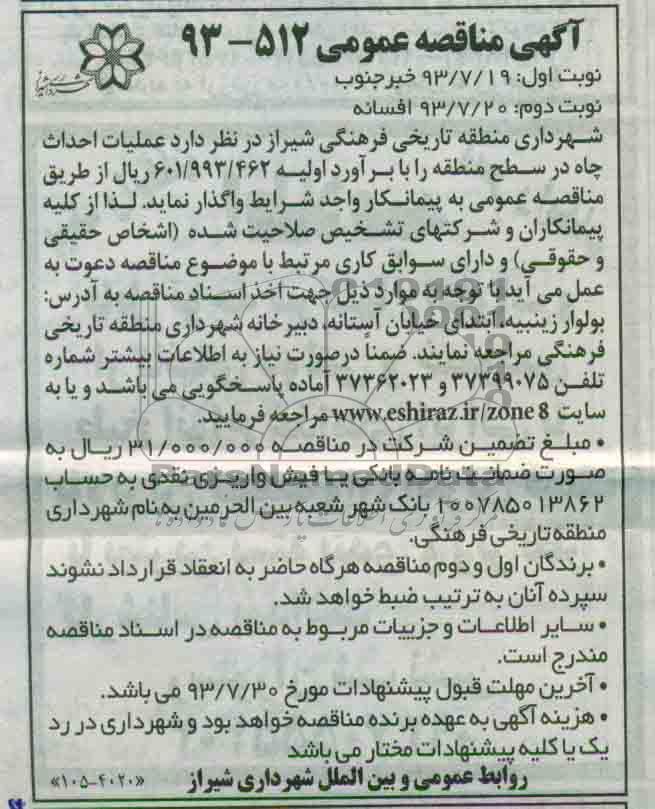 آگهی مناقصه عمومی ۵۱۲- ۹۳
نوبت اول: ۹۳/۷/۱۹ خبرجنوب
نوبت دوم: ۹۳/۷/۲۰ افسانه
شهرداری منطقه تاریخی فرهنگی شیراز در نظر دارد عملیات احداث
چاه در سطح منطقه را با برآورد اولیه ۶۰۱/۹۹۳/۴۶۲ ریال از طریق
مناقصه عمومی به پیمانکار واجد شرایط واگذار نماید. لذا از کلیه
پیمانکاران و شرکتهای تشخیص صلاحیت شده (اشخاص حقیقی
و حقوقی) و دارای سوابق کاری مرتبط با موضوع مناقصه دعوت به
عمل می آید با توجه به موارد ذیل جهت اخذ اسناد مناقصه به آدرس:
بولوار زینبیه، ابتدای خیابان آستانه، دبیرخانه شهرداری منطقه تاریخی
فرهنگی مراجعه نمایند. ضمناً درصورت نیاز به اطلاعات بیشتر شماره
تلفن ۳۷۳۹۹۰۷۵ و ۳۷۳۶۲۰۲۳ آماده پاسخگویی می باشد و یا به
سایت www.eshiraz.ir/zone 8 مراجعه فرمایید.
• مبلغ تضمین شرکت در مناقصه ۳۱/۰۰۰/۰۰۰ ریال به
صورت ضمانت نامه بانکی یا فیش واریزی نقدی به حساب
۱۰۰۷۸۵۰۱۳۸۶۲ بانک شهر شعبه بین الحرمین به نام شهرداری
منطقه تاریخی فرهنگی.
• برندگان اول و دوم مناقصه هرگاه حاضر به انعقاد قرارداد نشوند
سپرده آنان به ترتیب ضبط خواهد شد.
• سایر اطلاعات و جزییات مربوط به مناقصه در اسناد مناقصه
مندرج است.
• آخرین مهلت قبول پیشنهادات مورخ ۹۳/۷/۳۰ می باشد.
• هزینه آگهی به عهده برنده مناقصه خواهد بود و شهرداری در رد
یک یا کلیه پیشنهادات مختار می باشد
روابط عمومی و بین الملل شهرداری شیراز
«۱۰۵-۴۰۲۰»